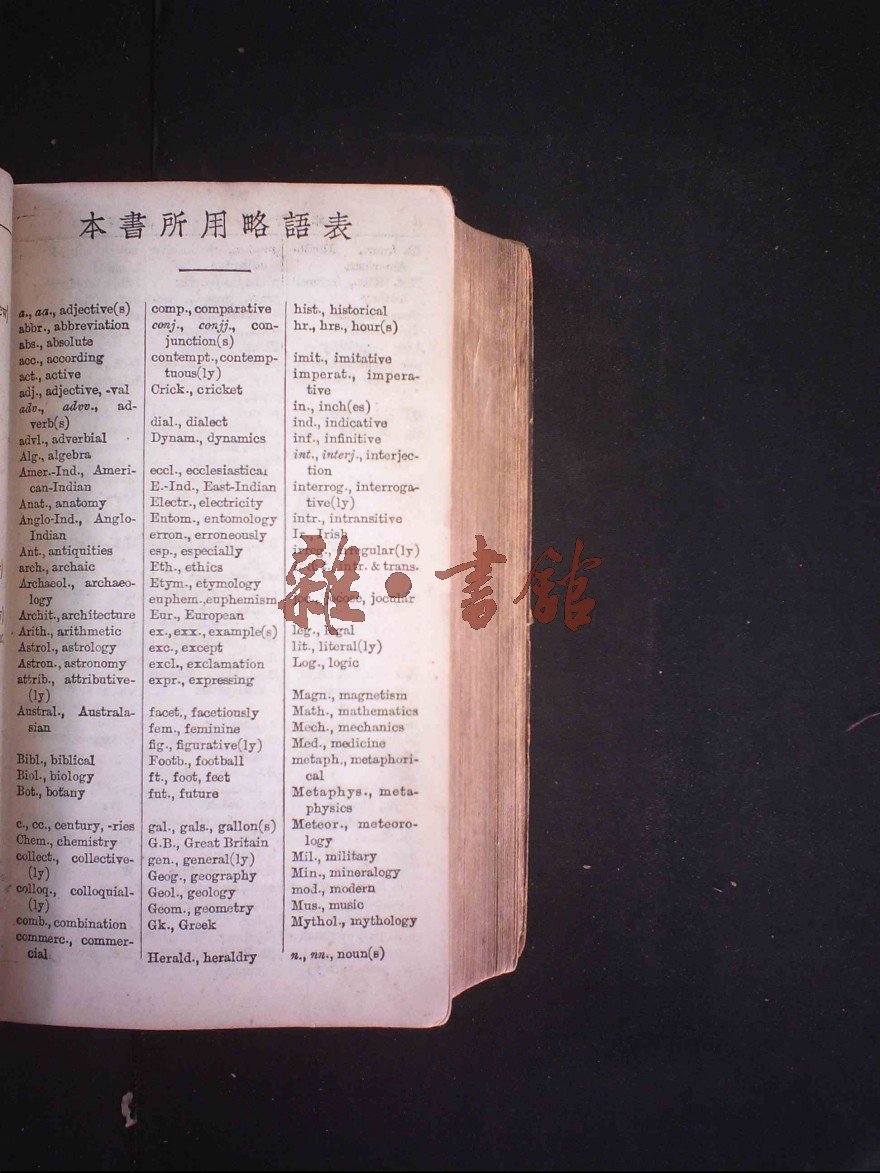 本書所用略語表
a., aa., adjective(s)
abbr., abbreviation
abs., absolute
acc., according
act., active
adj., adjective, -val
adv., advv., ad-
verb(s)
advl., adverbial
Alg., algebra
Amer.-Ind., Ameri-
can-Indian
Anat., anatomy
Anglo-Ind., Anglo-
Indian
Ant., antiquities
arch., archaic
Archaeol., archaeo-
logy
Archit., architecture
Arith., arithmetic
Astrol., astrology
Astron., astronomy
attrib., attributive-
(ly)
Austral., Australa-
sian
Bibl., biblical
Biol., biology
Bot., botany
c., cc., century, -ries
Chem., chemistry
collect., collective-
(ly)
colloq., colloquial-
(ly)
comb., combination
commerc., commer-
cial
comp., comparative
conj., conjj., con-
junction(s)
contempt., contemp-
tuous(ly)
Crick., cricket
dial., dialect
Dynam., dynamics
eccl., ecclesiastical
E.-Ind., East-Indian
Electr., electricity
Entom., entomology
erron., erroneously
esp., especially
Eth., ethics
Etym., etymology
euphem., euphemism
Eur., European
ex., exx., example(s)
exc., except
excl., exclamation
expr., expressing
facet., facetiously
fem., feminine
fig., figurative(ly)
Footb., football
ft., foot, feet
fut., future
gal., gals., gallon(s)
G.B., Great Britain
gen., general(ly)
Geog., geography
Geol., geology
Geom., geometry
Gk., Greek
Herald., heraldry
hist., historical
hr., hrs., hour(s)
imit., imitative
imperat., impera-
tive
in., inch(es)
ind., indicative
inf., infinitive
int., interj., interjec-
tion
interrog., interroga-
tive(ly)
intr., intransitive
Ir., Irish
irreg., irregular(ly)
intr. & trans.
joc., jocose, jocular
leg., legal
lit., literal(ly)
Log., logic
Magn., magnetism
Math., mathematics
Mech., mechanics
Med., medicine
metaph., metaphori-
cal
Metaphys., meta-
physics
Meteor., meteoro-
logy
Mil., military
Min., mineralogy
mod., modern
Mus., music
Mythol., mythology
n., nn., noun(s)
雜·書館